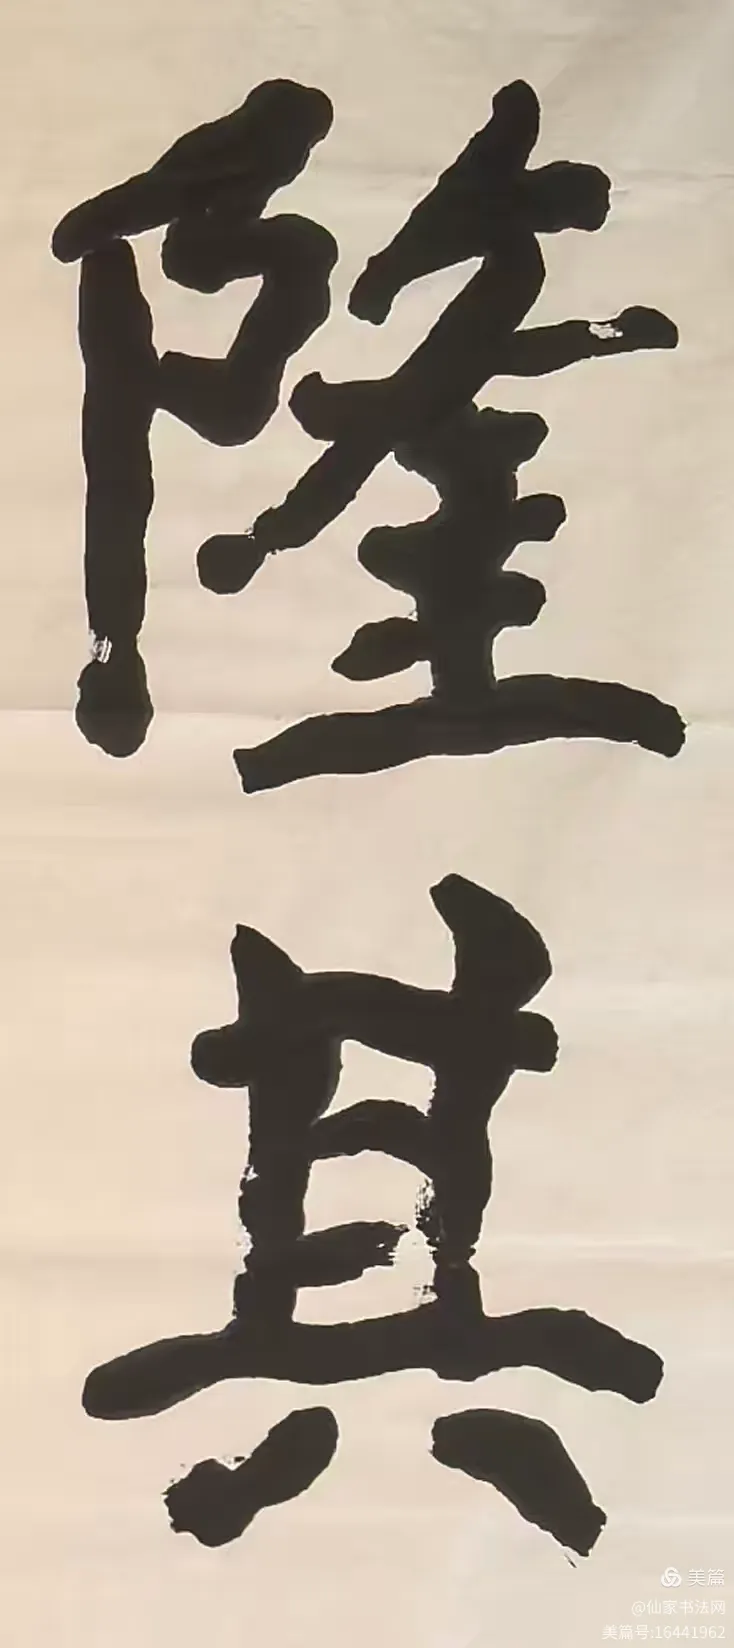 隆其
美篇
@仙家书法网
美篇号:16441962